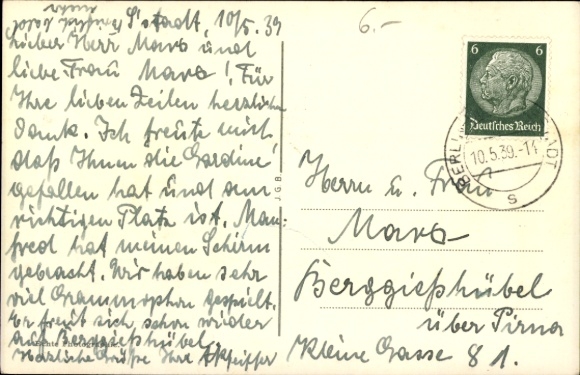 S'stadt, 10/5. 39
Lieber Herr Mara und
liebe Frau Mara! Für
Ihre lieben Zeilen herzlichen
Dank. Ich freute mich
daß Ihnen die Gardine
gefallen hat und am
richtigen Platz ist. Man-
fred hat meinen Schirm
gebracht. Wir haben sehr
viel Grammophon gespielt.
Er freut sich schon wieder
auf Berggießhübel.
Herzliche Grüße Ihre A Pfeiffer
6.-
6 6
Deutsches Reich
10.5.39.-14
s
J G B
Herrn u. Frau
Mara
Berggießhübel
über Pirna
Kleine Gasse 81.